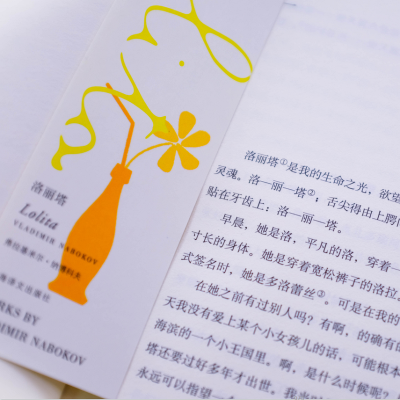 洛丽塔
Lolita
VLADIMIR NABOKOV
弗拉基米尔·纳博科夫
海译文出版社
RKS BY
DIMIR NABOKOV
洛丽塔①是我的生命之光,欲望
灵魂。洛—丽—塔②;舌尖得由上腭
贴在牙齿上:洛—丽—塔。
早晨,她是洛,平凡的洛,穿着一
寸长的身体。她是穿着宽松裤子的洛拉。
式签名时,她是多洛蕾丝③。可是在我的
在她之前有过别人吗?有啊,的确有的
天我没有爱上某个小女孩儿的话,可能根本
海滨的一个小王国里。啊,是什么时候呢?
塔还要过好多年才出世。我当时
永远可以指望一